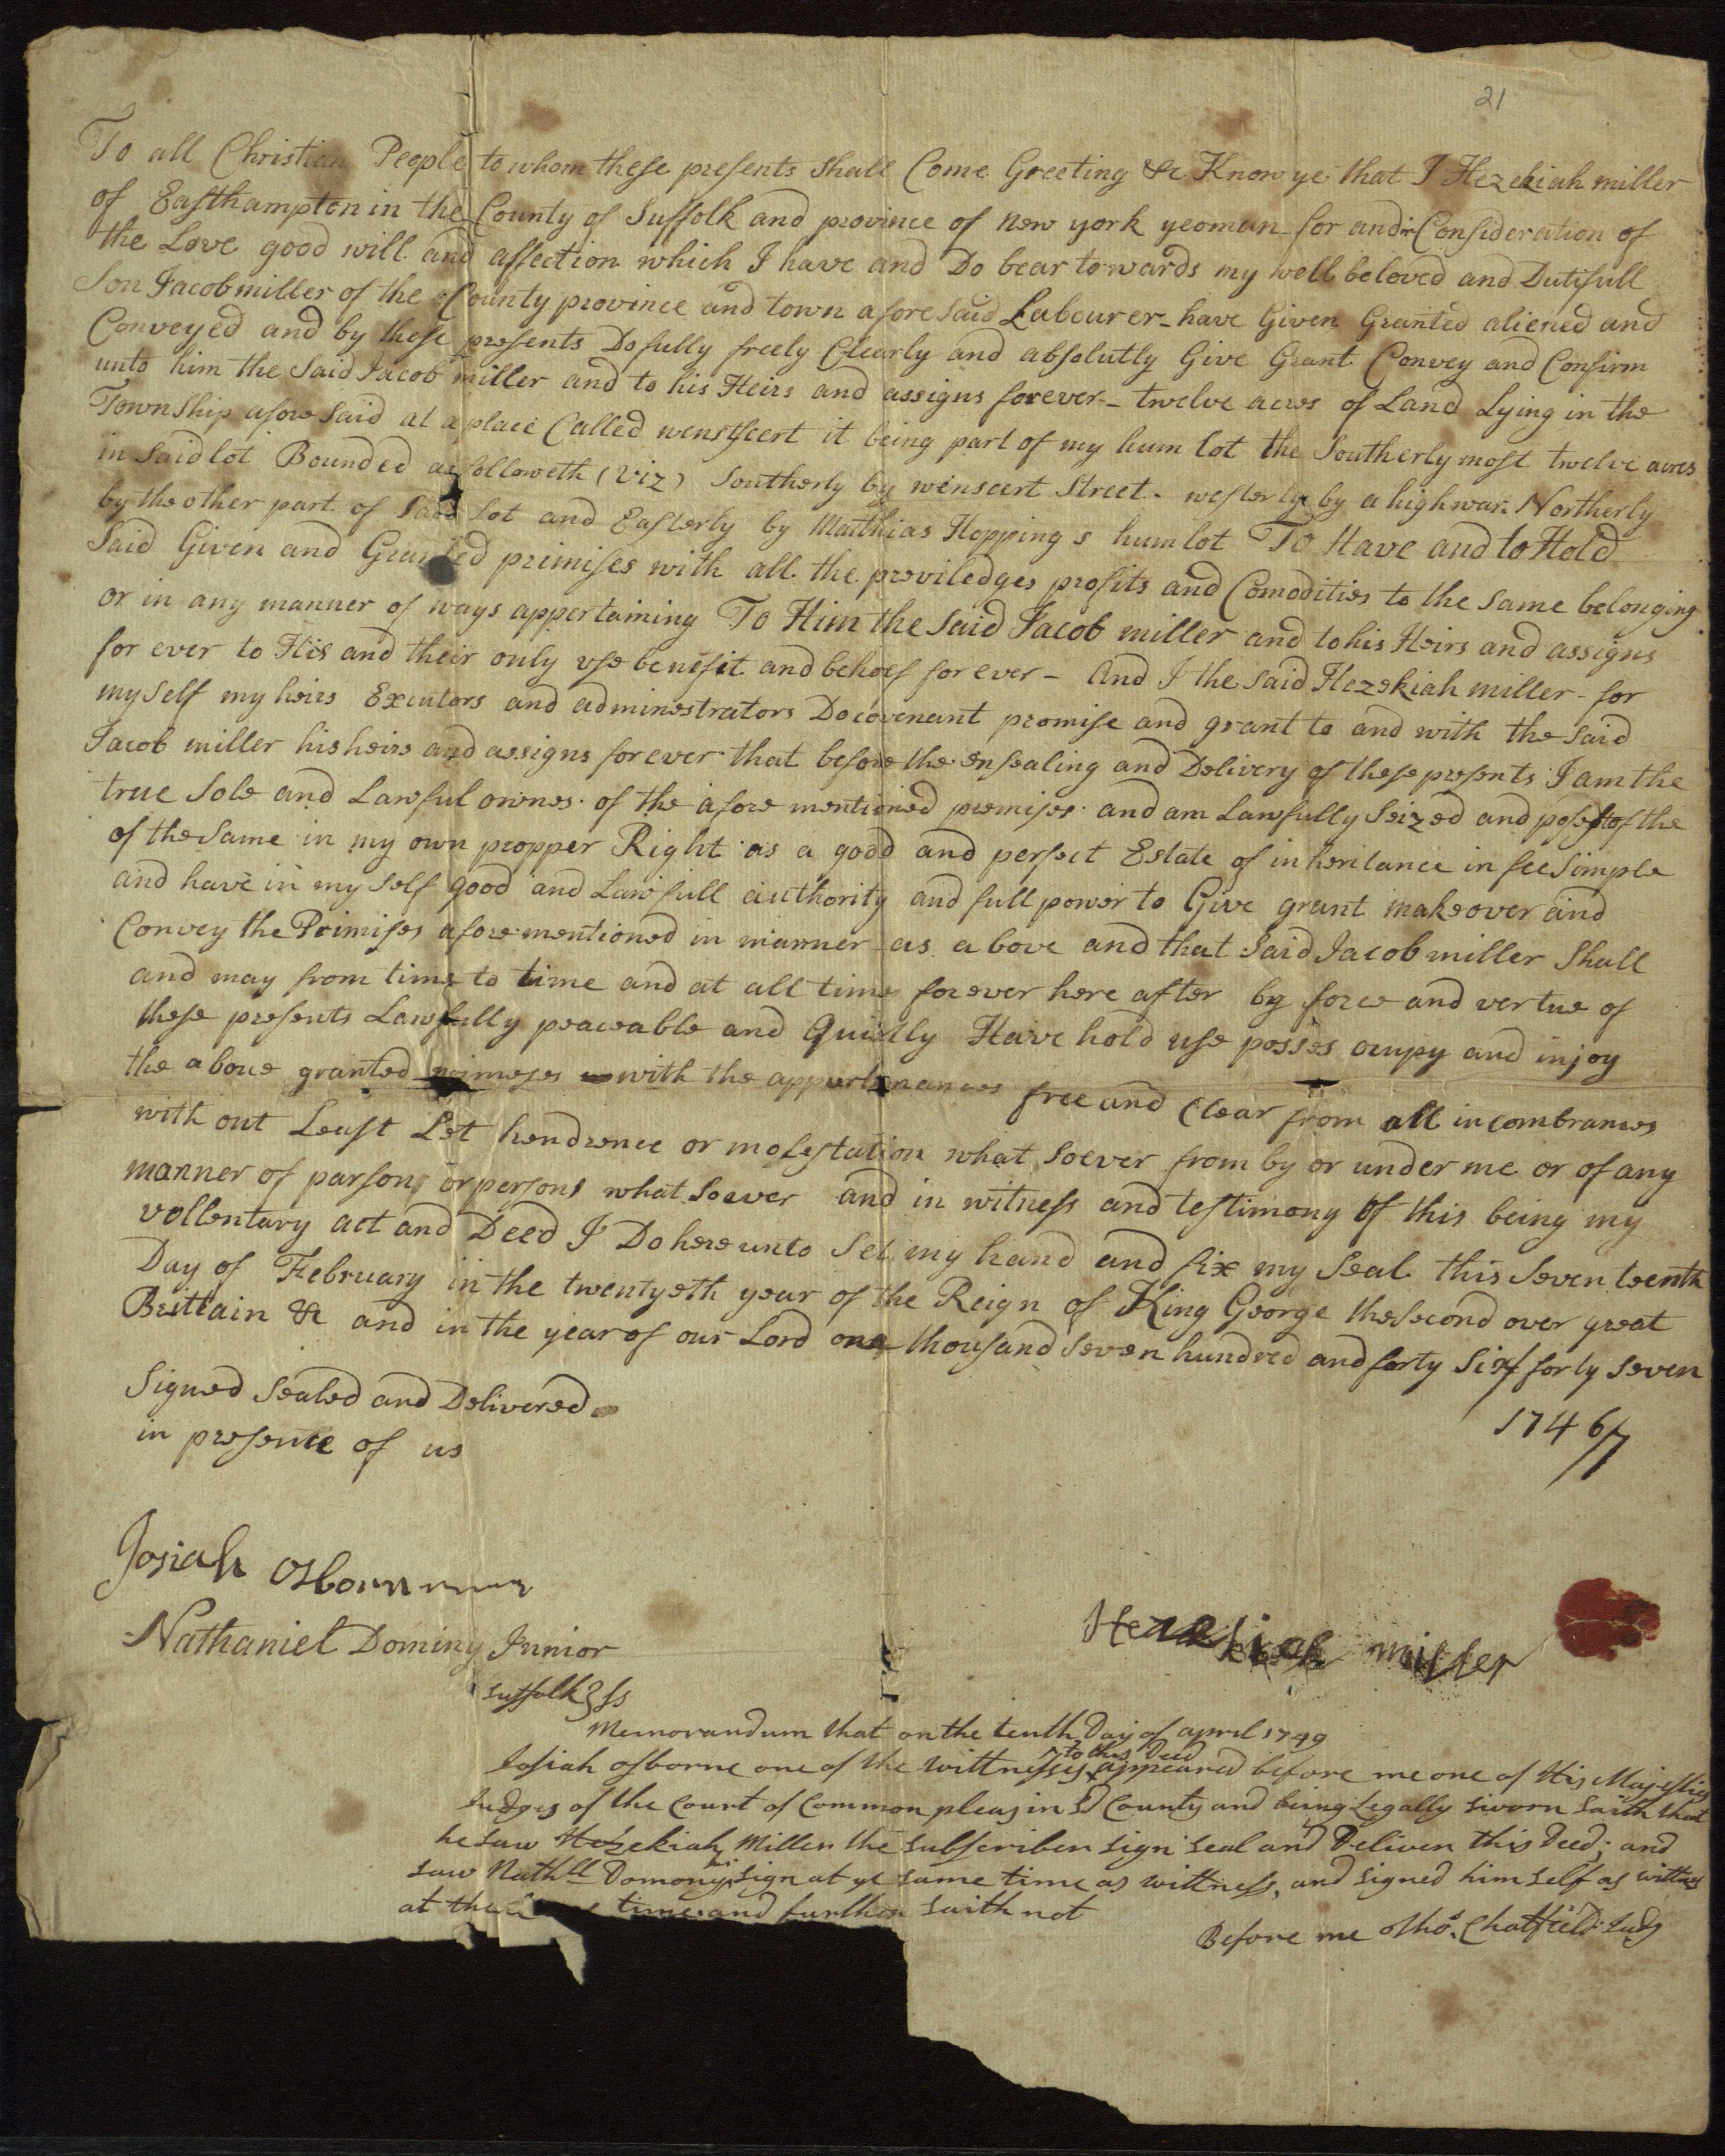 21
To all Christian People to whom these presents shall Come Greeting &c Know ye that I Hezekiah miller
of Easthampton in the County of Suffolk and province of new york yeoman for and in Consideration of
the Love good will and affection which I have and Do bear towards my well beloved and Dutifull
Son Jacob miller of the County province and town afore said Labourer - have Given Granted aliened and
Conveyed and by these presents Do fully freely Clearly and absolutly Give Grant Convey and Confirm
unto him the Said Jacob miller and to his Heirs and assigns forever - twelve acres of Land Lying in the
Township afore Said at a place Called it being part of my hum lot the Southerly most twelve acres
in Said lot Bounded as followeth (Viz) Southerly by winscert Street - westerly by a highway Northerly
by the other part of Said Lot and Easterly by Matthias Hoppings hum lot To Have and to Hold
Said Given and Granted primises with all the proviledges profits and Comodities to the Same belonging
or in any manner of ways appertaining To Him the Said Jacob miller and to his Heirs and assigns
for ever to His and their only use benifit and behoof for ever - And I the Said Hezekiah miller - for
my Self my heirs Exicutors and administrators Do covenant promise and grant to and with the Said
Jacob miller his heirs and assigns for ever that before the ensealing and Delivery of these presents I am the
true Sole and Lawful owner of the afore mentioned premises and am Lawfully Seized and posest of the
of the Same in my own propper Right as a good and perfect Estate of inheritance in fee Simple
and have in my Self good and Lawfull authority and full power to Give grant make over and
Convey the Primises afore mentioned in manner as above and that Said Jacob miller Shall
and may from time to time and at all times forever here after by force and vertue of
these presents Lawfully peaceable and Quietly Have hold use posses ocupy and injoy
the above granted primeses with the appurtenances free and Clear from all incombrances
with out Least Let hendrence or molestation what soever from by or under me or of any
manner of parson or persons what soever and in witness and testimony of this being my
vollentary act and Deed I Do hereunto Set my hand and fix my Seal this Seventeenth
Day of February in the twentyeth year of the Reign of King George the Second over great
Brittain &c and in the year of our Lord one thousand Seven hundred and forty Six/forty Seven
1746/7
Signed Sealed and Delivered
in presence of us
Josiah Osborn
Nathaniel Dominy Junior
Hezekiah miller
Suffolk } ss
Memorandum that on the tenth Day of april 1749
to this Deed
Josiah osborne one of the wittnesses appeared before me one of His Majesties
Judges of the Court of Common pleas in sd County and being Legally sworn saith that
he saw Hezekiah Miller the subscriber sign seal and Deliver this Deed; and
saw Nathll Domony sign at ye same time as wittness, and signed him self as wittnes
at the time and further saith not
Before me Thos. Chatfield Judg